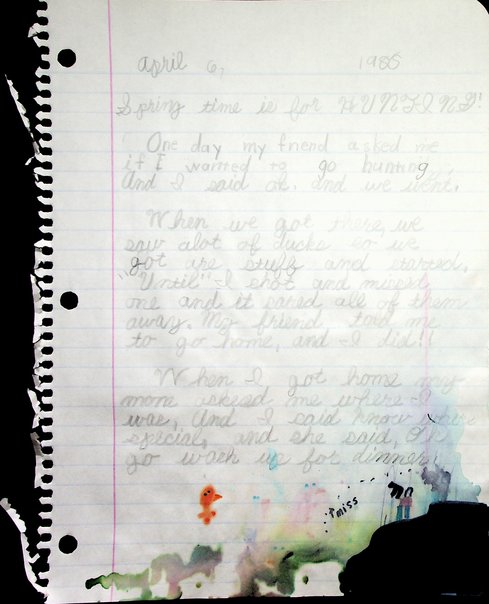 April 6, 1985
Spring time is for HUNTING!
One day my friend asked me
if I wanted to go hunting.
And I said ok. and we went.
When we got there, we
saw alot of ducks so we
got are stuff and started.
"Until" I shot and missed
one and it scared all of them
away. My friend told me
to go home, and I did!!
When I, got home my
mom askead me where I
was, And I said know where
special, and she said, Ok
go wach up for dinner!
I miss